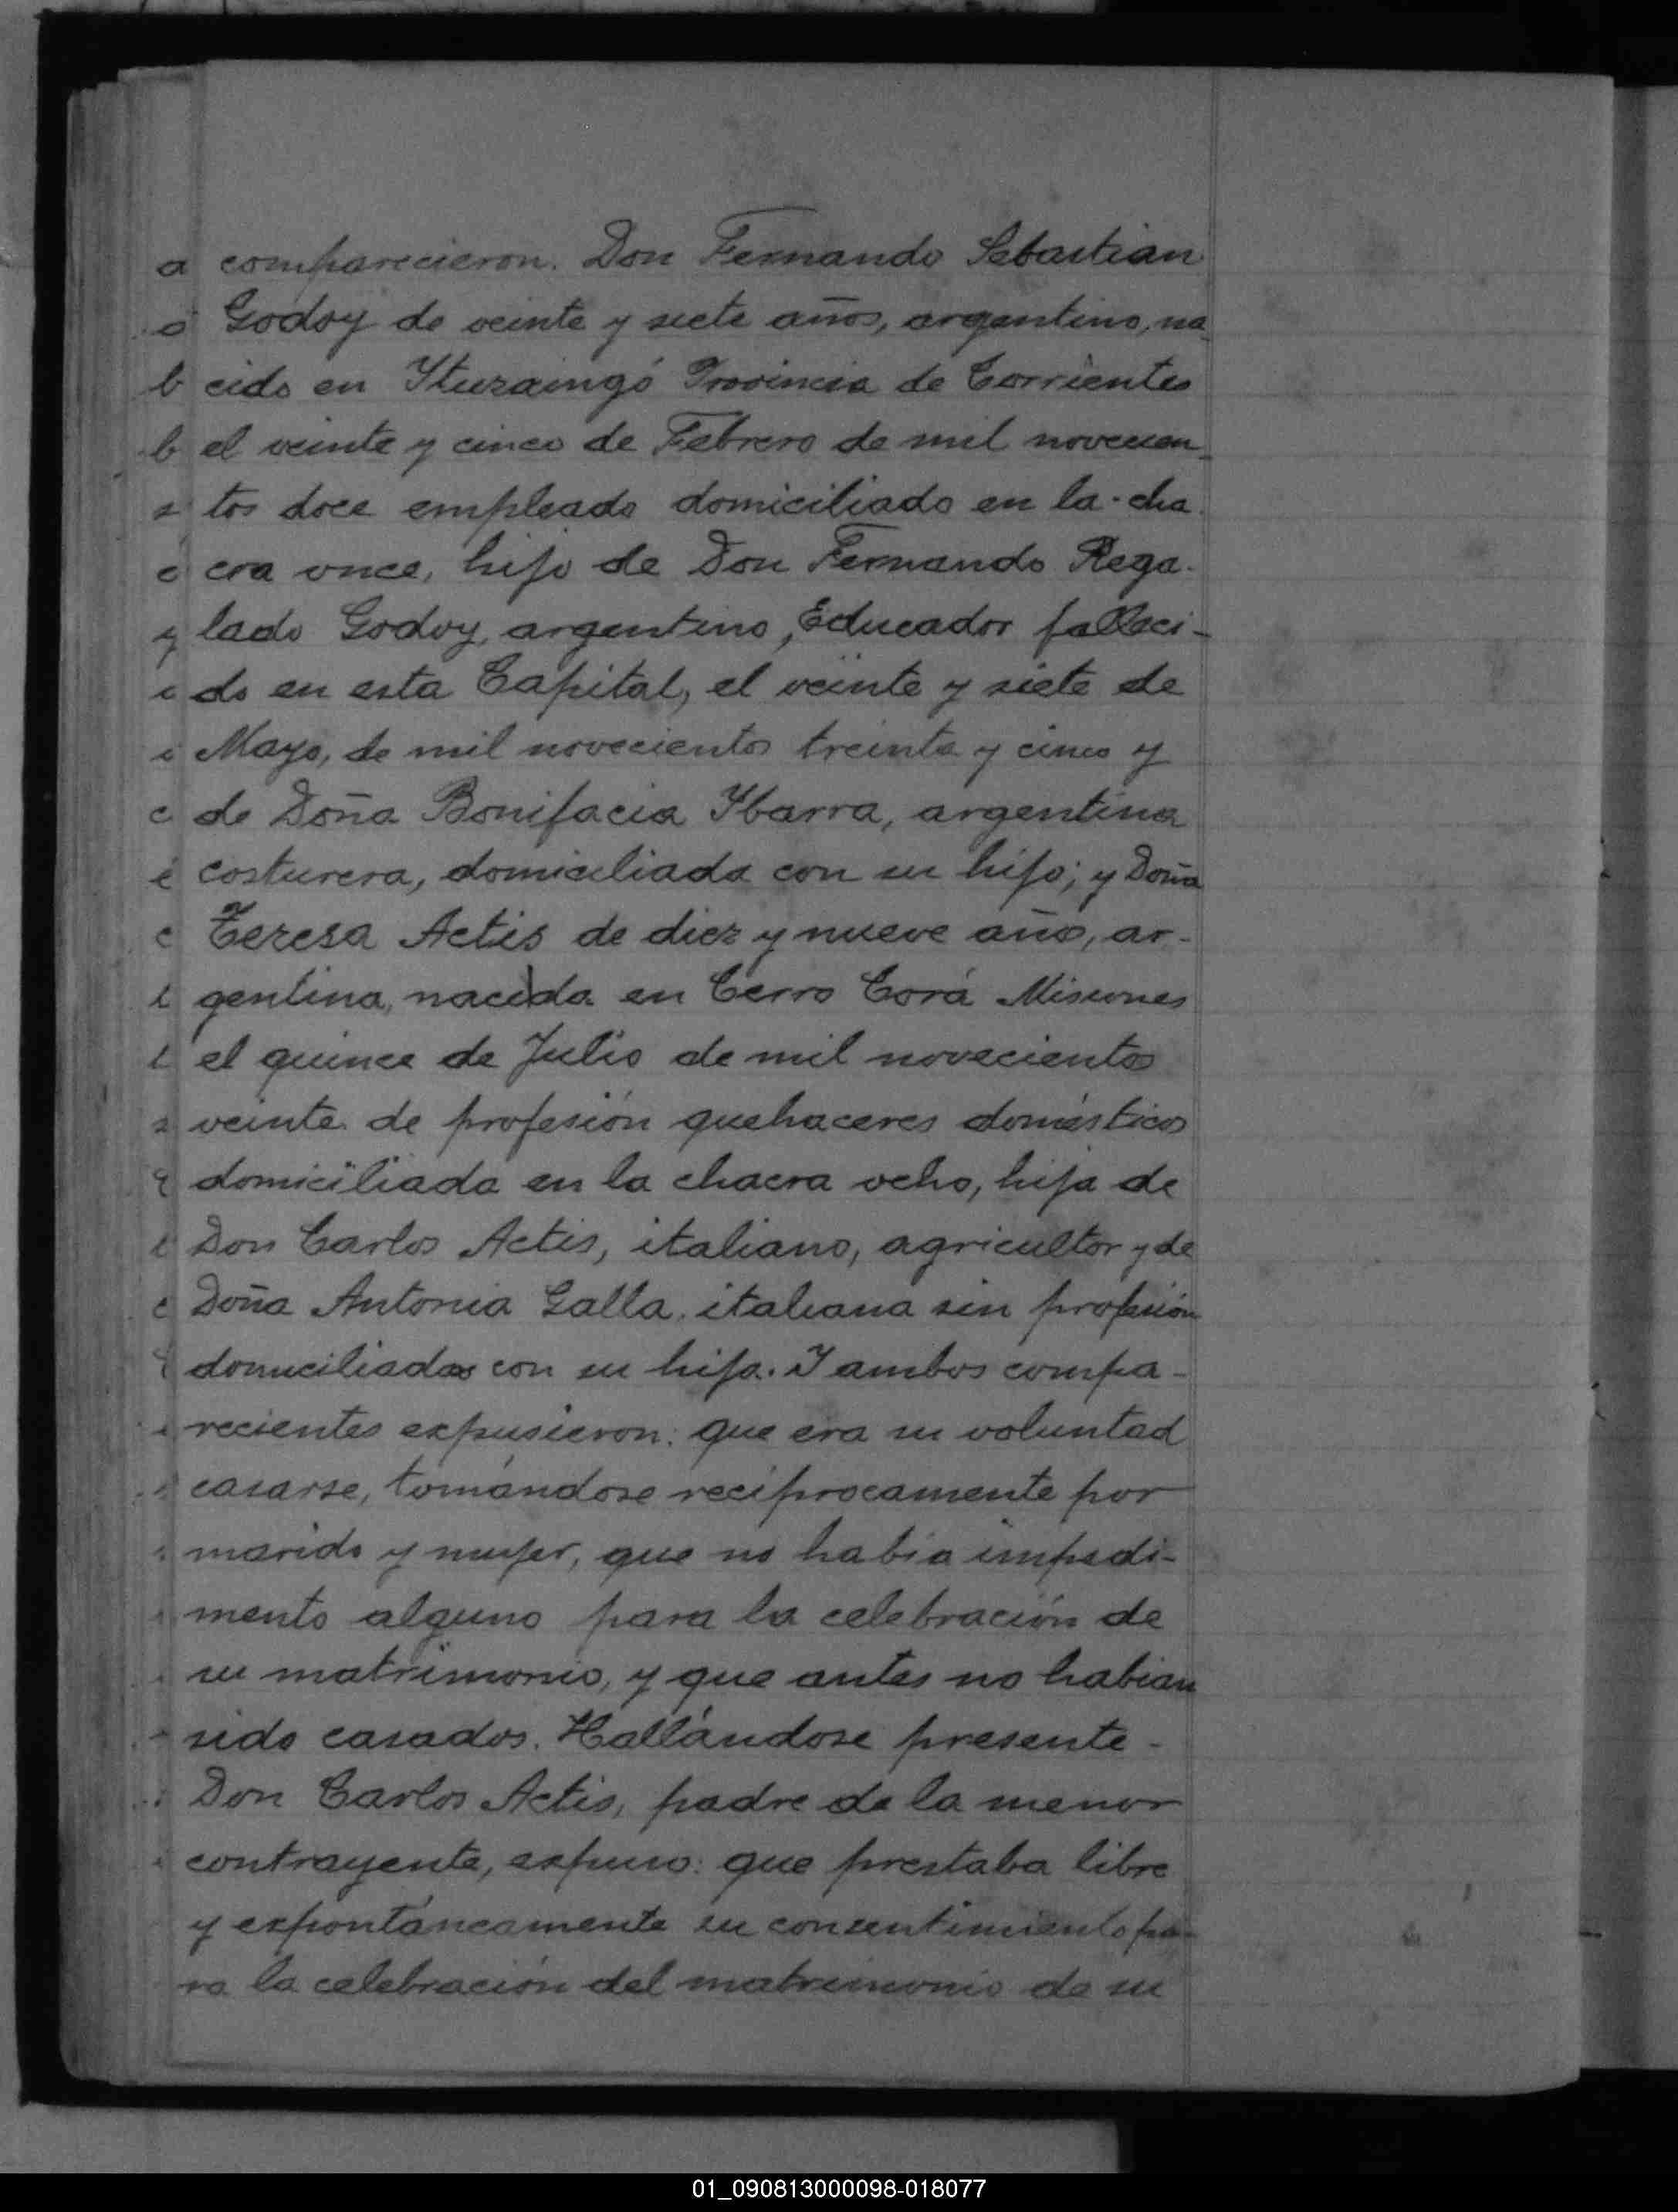 comparecieron. Don Fernando Sebastian
Godoy de veinte y siete años, argentino, na_
cido en Ytuzaingó Provincia de Corrientes
el veinte y cinco de Febrero de mil novecien_
tos doce empleado domiciliado en la cha.
cra once, hijo de Don Fernando Rega-
lado Godoy, argentino, Educador falleci-
do en esta Capital, el veinte y siete de
Mayo, de mil novecientos treinta y cinco y
de Doña Bonifacia Ybarra, argentina
costurera, domiciliada con su hijo; y Doña
Teresa Actis de diez y nueve año, ar-
gentina, nacida en Cerro Corá Misiones
el quince de Julio de mil novecientos
veinte de profesión quehaceres domésticos
domiciliada en la chacra ocho, hija de
Don Carlos Actis, italiano, agricultor y de
Doña Antonia Galla. italiana sin profesión
domiciliados con su hija. Y ambos compa-
recientes expusieron: que era su voluntad
casarse, tomándose reciprocamente por
marido y mujer, que no habia impedi-
mento alguno para la celebración de
su matrimonio, y que antes no habian
sido casados. Hallándose presente-
Don Carlos Actis, padre de la menor
contrayente, expuso: que prestaba libre
y expontáneamente su consentimiento pa-
ra la celebración del matrimonio de su
01_090813000098-018077